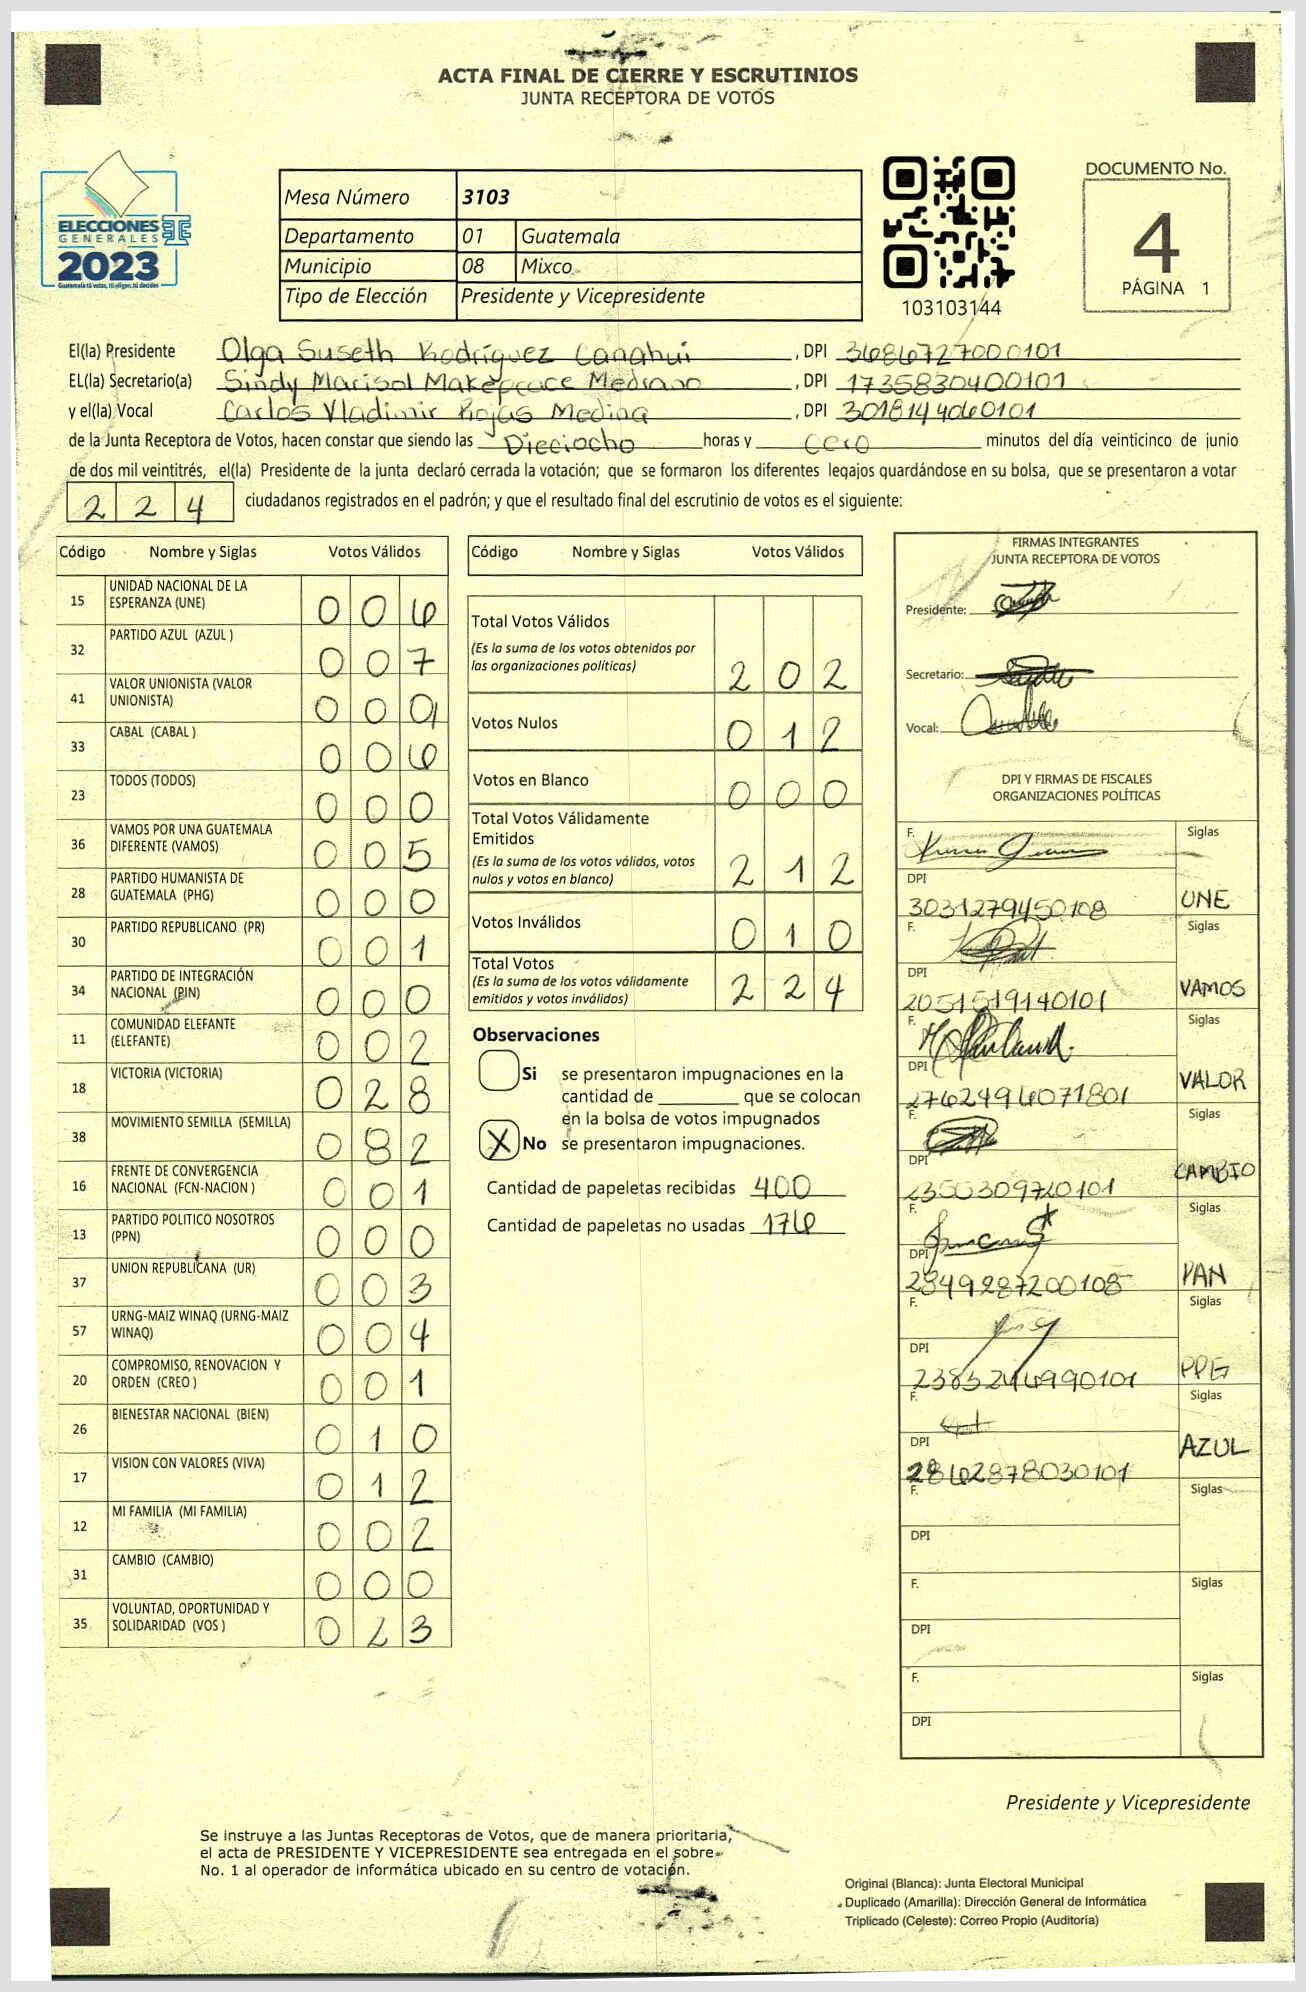 ACTA FINAL DE CIERRE Y ESCRUTINIOS
JUNTA RECEPTORA DE VOTOS
ELECCIONES
GENERALES
2023
Guatemala tú votas, tú eliges, tú decides
Mesa Número 3103
Departamento 01 Guatemala
Municipio 08 Mixco
Tipo de Elección Presidente y Vicepresidente
103103144
DOCUMENTO No.
4
PÁGINA 1
El(la) Presidente Olga Suseth Rodríguez Canahui, DPI 3686727000101
EL(la) Secretario(a) Sindy Marisol Makepeace Medrano, DPI 1735830400101
y el(la) Vocal Carlos Vladimir Rojas Medina, DPI 3018144060101
de la Junta Receptora de Votos, hacen constar que siendo las Dieciocho horas y cero minutos del día veinticinco de junio
de dos mil veintitrés, el(la) Presidente de la junta declaró cerrada la votación; que se formaron los diferentes legajos quardándose en su bolsa, que se presentaron a votar
224 ciudadanos registrados en el padrón; y que el resultado final del escrutinio de votos es el siguiente:
Código Nombre y Siglas Votos Válidos
15 UNIDAD NACIONAL DE LA ESPERANZA (UNE) 006
32 PARTIDO AZUL (AZUL ) 007
41 VALOR UNIONISTA (VALOR UNIONISTA) 00
33 CABAL (CABAL ) 006
23 TODOS (TODOS) 000
36 VAMOS POR UNA GUATEMALA DIFERENTE (VAMOS) 005
28 PARTIDO HUMANISTA DE GUATEMALA (PHG) 000
30 PARTIDO REPUBLICANO (PR) 001
34 PARTIDO DE INTEGRACIÓN NACIONAL (PIN) 000
11 COMUNIDAD ELEFANTE (ELEFANTE) 002
18 VICTORIA (VICTORIA) 028
38 MOVIMIENTO SEMILLA (SEMILLA) 082
16 FRENTE DE CONVERGENCIA NACIONAL (FCN-NACION ) 001
13 PARTIDO POLITICO NOSOTROS (PPN) 000
37 UNION REPUBLICANA (UR) 003
57 URNG-MAIZ WINAQ (URNG-MAIZ WINAQ) 004
20 COMPROMISO, RENOVACION Y ORDEN (CREO ) 001
26 BIENESTAR NACIONAL (BIEN) 010
17 VISION CON VALORES (VIVA) 012
12 MI FAMILIA (MI FAMILIA) 002
31 CAMBIO (CAMBIO) 000
35 VOLUNTAD, OPORTUNIDAD Y SOLIDARIDAD (VOS ) 023
Código Nombre y Siglas Votos Válidos
Total Votos Válidos 202
(Es la suma de los votos obtenidos por
las organizaciones políticas)
Votos Nulos 012
Votos en Blanco 000
Total Votos Válidamente
Emitidos
(Es la suma de los votos válidos, votos
nulos y votos en blanco) 212
Votos Inválidos 010
Total Votos
(Es la suma de los votos válidamente
emitidos y votos inválidos) 224
Observaciones
Si se presentaron impugnaciones en la
cantidad de ________ que se colocan
en la bolsa de votos impugnados
X No se presentaron impugnaciones.
Cantidad de papeletas recibidas 400
Cantidad de papeletas no usadas 176
FIRMAS INTEGRANTES
JUNTA RECEPTORA DE VOTOS
Presidente:
Secretario:
Vocal:
DPI Y FIRMAS DE FISCALES
ORGANIZACIONES POLÍTICAS
F. Siglas
DPI
3031279450108 UNE
F. Siglas
DPI
2051519140101 VAMOS
F. Siglas
DPI
2762494071801 VALOR
F. Siglas
DPI
2350309720101 CAMBIO
F. Siglas
DPI
2349287200108 PAN
F. Siglas
DPI
PPG
F. Siglas
DPI
2862878030101 AZUL
F. Siglas
DPI
F. Siglas
DPI
F. Siglas
DPI
Presidente y Vicepresidente
Se instruye a las Juntas Receptoras de Votos, que de manera prioritaria,
el acta de PRESIDENTE Y VICEPRESIDENTE sea entregada en el sobre
No. 1 al operador de informática ubicado en su centro de votación.
Original (Blanca): Junta Electoral Municipal
Duplicado (Amarilla): Dirección General de Informática
Triplicado (Celeste): Correo Propio (Auditoría)